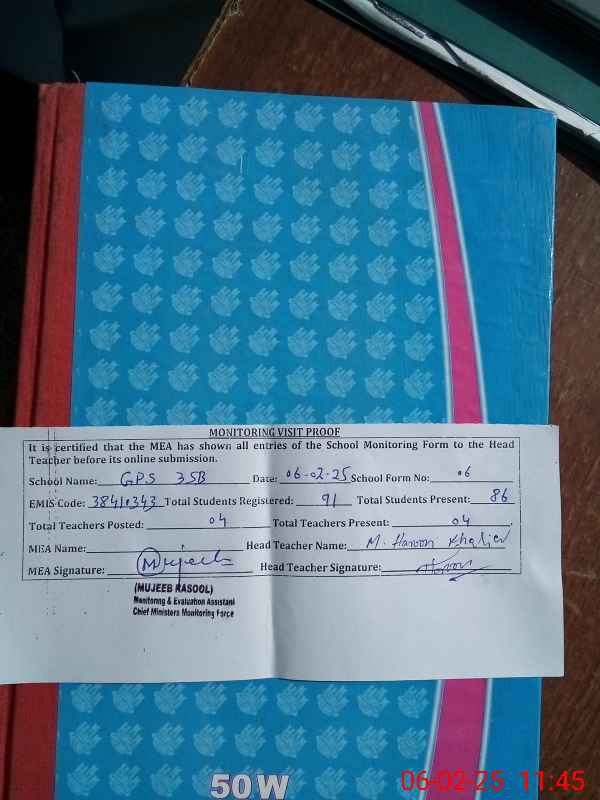 MONITORING VISIT PROOF
It is certified that the MEA has shown all entries of the School Monitoring Form to the Head
Teacher before its online submission.
School Name: GPS 35B Date: 06-02-25 School Form No: 06
EMIS Code: 38410343 Total Students Registered: 91 Total Students Present: 86
Total Teachers Posted: 04 Total Teachers Present: 04
MEA Name: Head Teacher Name: M. Haroon Khalid
MEA Signature: Mujeeb Head Teacher Signature: Haroon
(MUJEEB RASOOL)
Monitoring & Evaluation Assistant
Chief Ministers Monitoring Force
50W
06-02-25 11:45